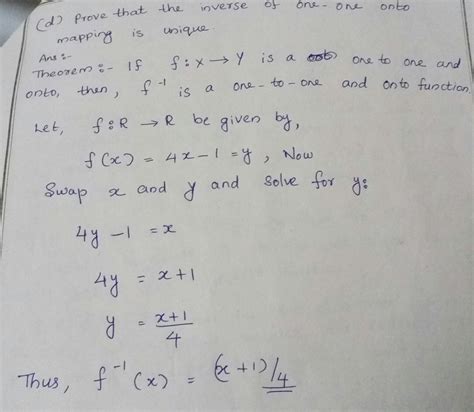 (d) Prove that the inverse of one-one onto
mapping is unique.
Ans :-
Theorem :- If f : X → Y is a one to one and
onto, then, f⁻¹ is a one-to-one and onto function.
Let, f : R → R be given by,
f(x) = 4x - 1 = y, Now
Swap x and y and solve for y:
4y - 1 = x
4y = x + 1
y = x+1/4
Thus, f⁻¹(x) = (x + 1)/4